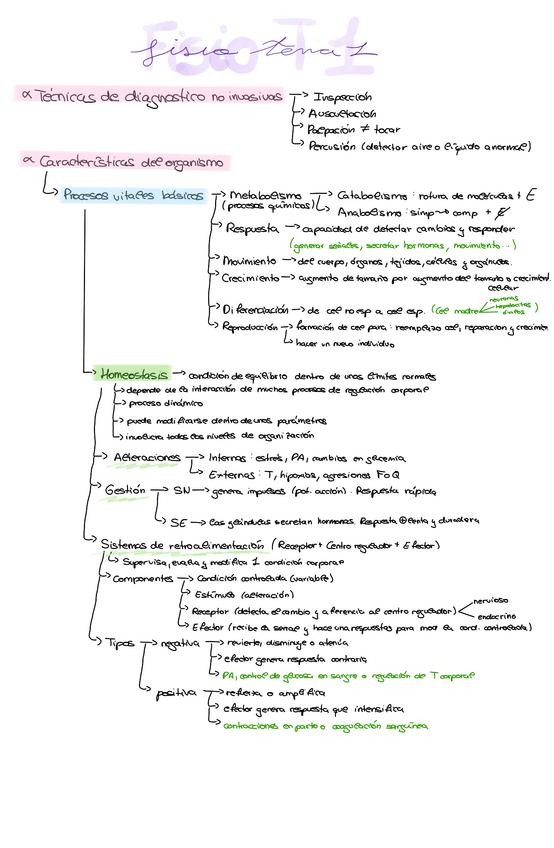 Fisio T1
fisio tema 1
∝ Técnicas de diagnostico no invasivas → Inspección
→ Auscultación
→ Palpación ≠ tocar
→ Percusión (detectar aire o líquido anormal)
∝ Características del organismo
→ Procesos vitales básicos → Metabolismo → Catabolismo : rotura de moléculas + E
(procesos químicos) → Anabolismo : simp → comp + E
→ Respuesta → capacidad de detectar cambios y responder
(generar señales, secretar hormonas, movimiento...)
→ Movimiento → del cuerpo, órganos, tejidos, células y orgánulos.
→ Crecimiento → aumento de tamaño por aumento del tamaño o crecimient.
celular
→ Diferenciación → de cel no esp a cel esp. (cel madre neuronas
hepatocitos
)
→ Reproducción → formación de cel para : reemplazo cel, reparacion y crecimie
→ hacer un nuevo individuo
→ Homeostasis → condición de equilibrio dentro de unos límites normales
→ depende de la interacción de muchos procesos de regulación corporal
→ proceso dinámico
→ puede modificarse dentro de unos parámetros
→ involucra todos los niveles de organización
→ Alteraciones → Internas : estrés, PA, cambios en glucemia
→ Externas : T, hipoxias, agresiones F o Q
→ Gestión → SN → genera impulsos (pot. acción). Respuesta rápida
→ SE → las glándulas secretan hormonas. Respuesta ⊕ lenta y duradera
→ Sistemas de retroalimentación (Receptor + Centro regulador + Efector)
→ Supervisa, evalua y modifica 1 condición corporal
→ Componentes → Condición controlada (variable)
→ Estímulo (alteración)
→ Receptor (detecta el cambio y aferencia al centro regulador) nervioso
endocrino
→ Efector (recibe la señal y hace una respuesta para mod la cond. controlada)
→ Tipos → negativa → revierte, disminuye o atenúa
→ efector genera respuesta contraria
→ PA, control de glucosa en sangre o regulación de T corporal
→ positiva → refuerza o amplifica
→ efector genera respuesta que intensifica
→ contracciones en parto o coagulación sanguínea